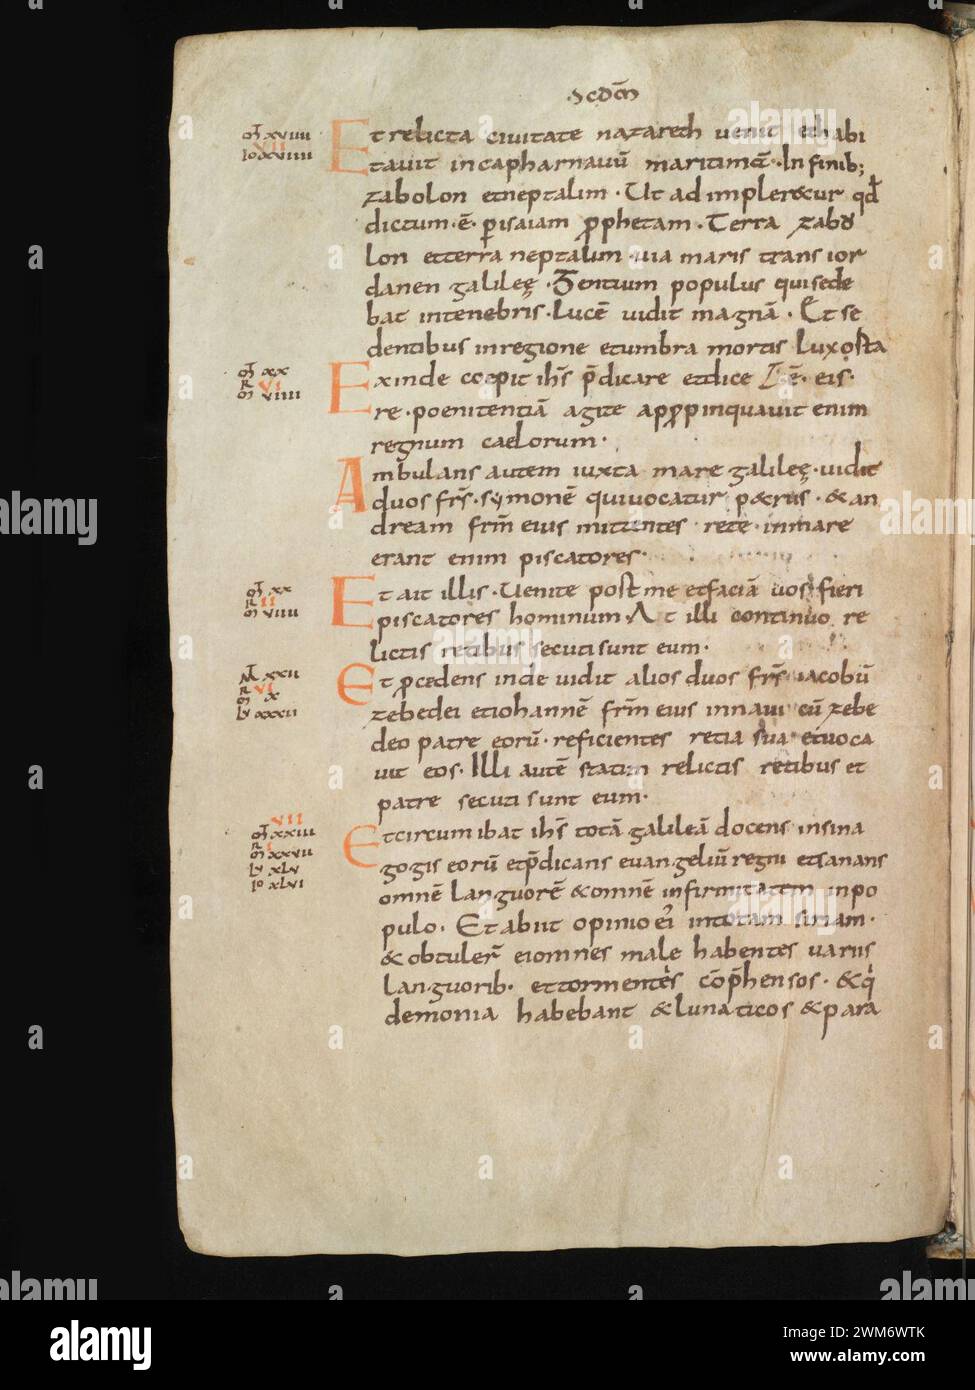 scdm̄
mt̄ xviiii
vii
Io xviiii
Et relicta civitate nazareth venit et habi
tavit in capharnauū maritimā · In finib;
zabolon et neptalim · Ut adimpleretur qđ
dictum · ē · p isaiam prophetam · Terra zabo
lon et terra neptalim · via maris trans ior
danen galileę · Gentium populus qui sede
bat in tenebris · Lucē vidit magnā · Et se
dentibus in regione et umbra mortis Lux orta
mt̄ xx
vi
R
m viiii
Exinde coepit ihs̄ p̄dicare et dice ē · eis ·
re · poenitentiā agite appropinquavit enim
regnum caelorum ·
Ambulans autem iuxta mare galileę · vidit
duos frs̄ · symonē qui vocatur petrus · & an
dream frm̄ eius mittentes rete in mare
erant enim piscatores ·
mt̄ xx
R ii
m viiii
Et ait illis · Venite post me et faciā vos fieri
piscatores hominum At illi continuo re
lictis retibus secuti sunt eum ·
Mt xxii
vi
R
m x
Lv xxxii
Et pcedens inde vidit alios duos frs̄ iacobū
zebedei et iohannē frm̄ eius in navi cū zebe
deo patre eorū · reficientes retia sua et voca
vit eos · Illi autē statim relictis retibus et
patre secuti sunt eum ·
vii
mt̄ xxiii
R i
m xxvii
Lv xLv
Io xLvi
Et circum ibat ihs̄ totā galileā docens in sina
gogis eorū et p̄dicans evangeliū regni et sanans
omnē Languorē & omnē infirmitatem in po
pulo · Et abiit opinio ei' in totam siriam ·
& obtuler̄ ei omnes male habentes variis
Languorib· et tormentis cōp̄hensos · & q'
demonia habebant & Lunaticos & para
alamy
a
alamy
Image ID: 2WM6WTK
www.alamy.com